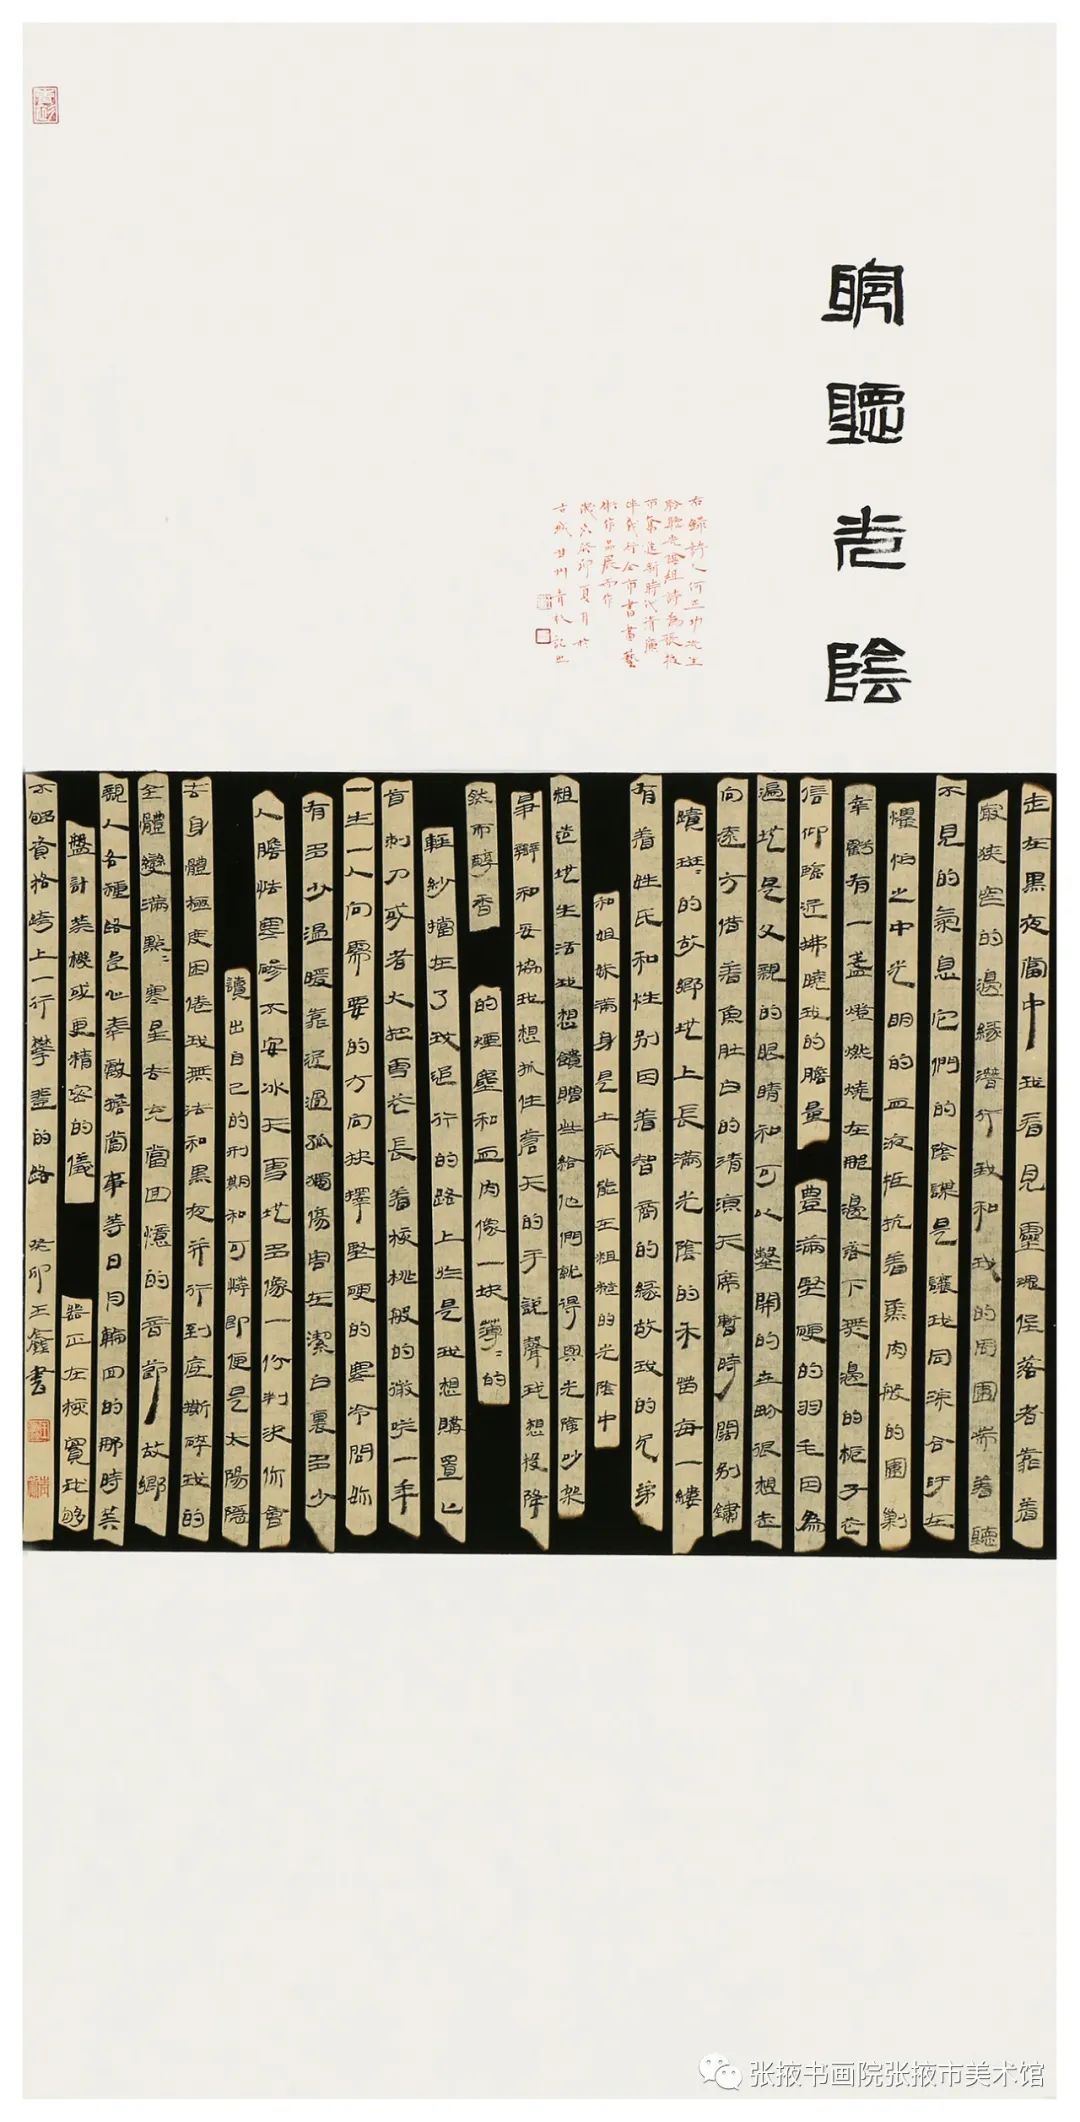 聆聽光陰
右錄詩人何正功先生
聆聽光陰組詩為張掖
市奮進新時代清廉
術作品展而作
歲次癸卯夏月於
古城甘州青松記也
走在黑夜當中我看見靈魂侄落者靠着
最狹窄的邊緣潛行我和我的周圍常着聽
不見的氣息它們的陰謀是讓我同流合污在
懼怕之中光明的血液抵抗着熏肉般的圍剿
幸虧有一盞燈燃燒在腮邊落下無邊的梔子花
信仰臨近拂曉我的膽量豐滿堅硬的羽毛因為
遍地是父親的眼睛和可以整開的五畝很想走
向遠方借着魚肚白的清涼天席暫時闊別鏽
蹟斑:的故鄉地上長滿光陰的禾苗每一縷
有着姓氏和性別因着智商的緣故我的兄弟
和姐妹滿身是土祇能在粗糙的光陰中
粗造地生活我想饋贈些給他們就得與光陰吵架
爭辯和妥協我想抓住蒼天的手說聲我想投降
然而醇香的煙塵和血肉像一塊薄:的
輕紗擋在了我追行的路上於是我想購置匕
首刺刀或者火把雪花長着核桃般的微笑一年
一生一人向需要的方向抉擇堅硬的塵冷悶妳
有多少溫暖靠近過孤獨傷害在潔白裏多少
人膽怯寒磣不安冰天雪地多像一份判決你會
讀出自己的刑期和可憐即便是太陽隱
去身體極度困倦我無法和黑夜并行到底撕碎我的
全體變滿點:寒星去充當回憶的音節故鄉
親人各種路奉獻擔當事等日月輪回的那時其
盤計算機或更精密的儀器正在核實我夠
不夠資格跨上一行攀登的路癸卯王鑫書
张掖书画院张掖市美术馆